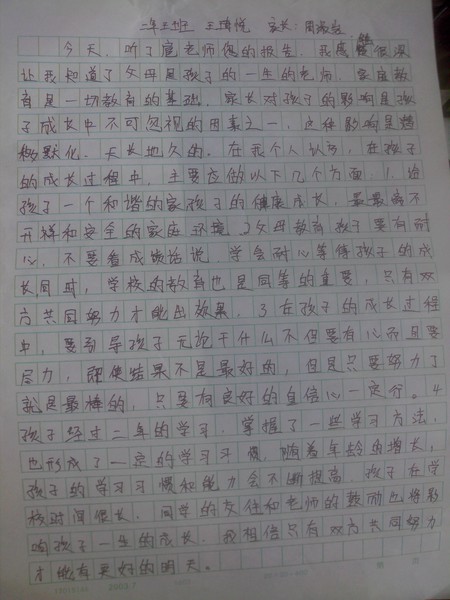 二年三班 王琦悦 家长:周
今天,听了扈老师您的报告,我感触很深
让我知道了父母是孩子的一生的老师,家庭教
育是一切教育的基础。家长对孩子的影响是孩
子成长中不可忽视的因素之一,这种影响是潜
移默化、天长地久的。在我个人认为,在孩子
的成长过程中,主要应做以下几个方面:1、给
孩子一个和谐的家孩子的健康成长,最最离不
开祥和安全的家庭环境。2父母教育孩子要有耐
心,不要看成绩话说,学会耐心等待孩子的成
长同时,学校的教育也是同等的重要,只有双
方共同努力才能出效果。3在孩子的成长过程
中,要引导孩子无论干什么不但要有心而且要
尽力,即使结果不是最好的,但是只要努力了
就是最棒的,只要有良好的自信心一定行。4
孩子经过二年的学习,掌握了一些学习方法,
也形成了一定的学习习惯,随着年龄的增长,
孩子的学习习惯和能力会不断提高。孩子在学
校时间很长,同学的友谊和老师的鼓励也将影
响孩子一生的成长。我相信只有双方共同努力
才能有更好的明天。